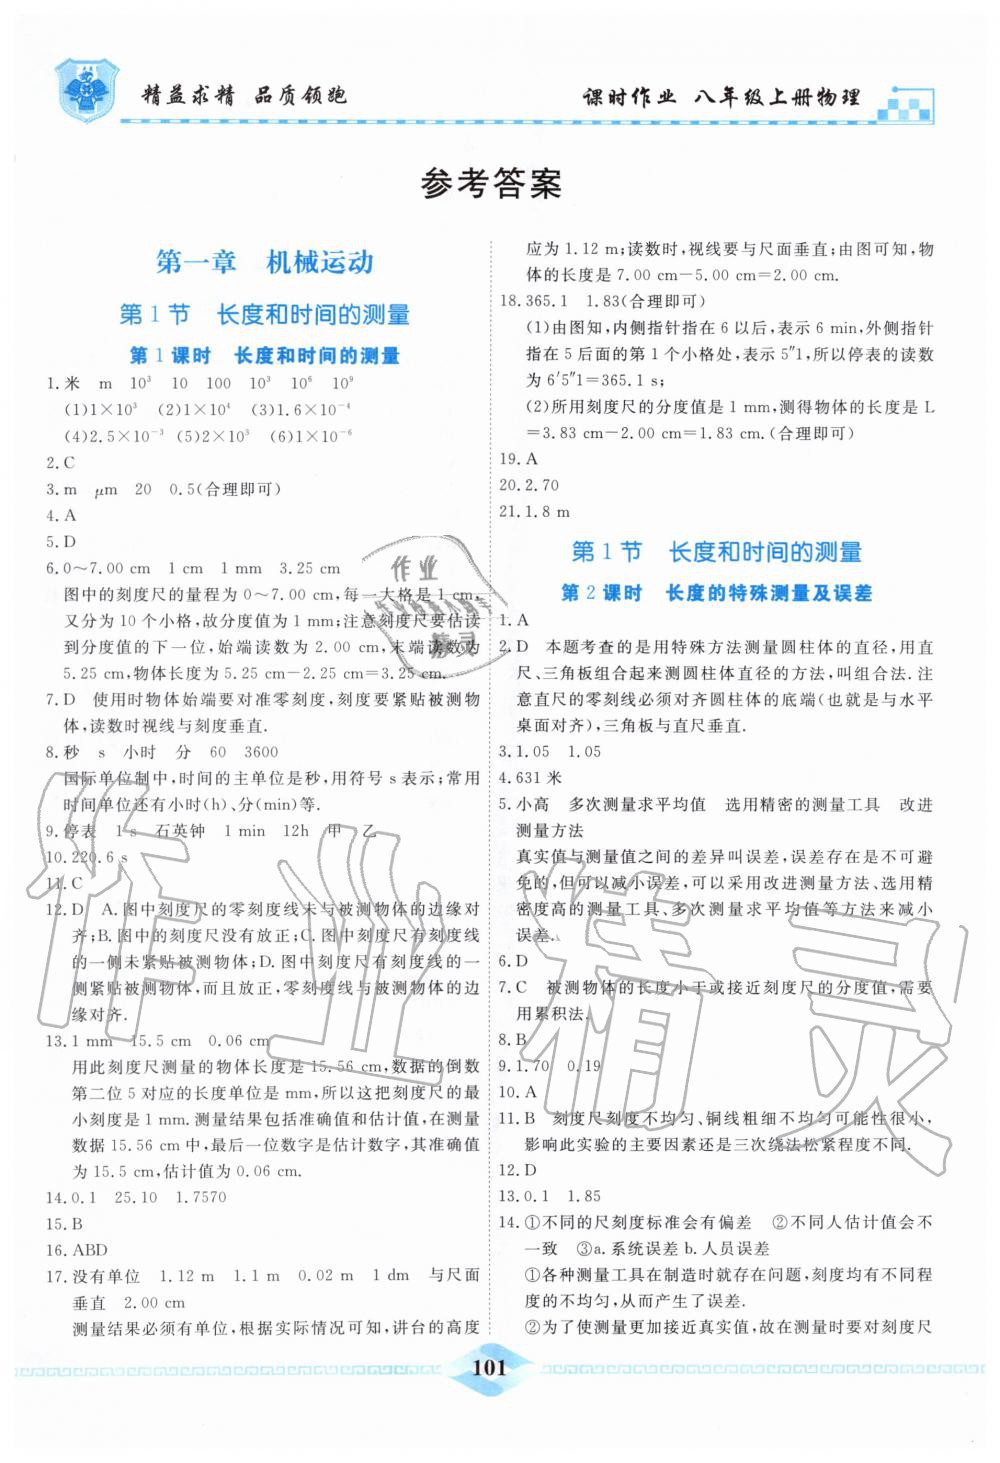 精益求精 品质领跑
课时作业 八年级上册物理
参考答案
第一章 机械运动
第1节 长度和时间的测量
第1课时 长度和时间的测量
1.米 m 10³ 10 100 10³ 10⁶ 10⁹
(1)1×10³ (2)1×10⁴ (3)1.6×10⁻⁴
(4)2.5×10⁻³ (5)2×10³ (6)1×10⁻⁶
2.C
3.m μm 20 0.5(合理即可)
4.A
5.D
6.0～7.00 cm 1 cm 1 mm 3.25 cm
图中的刻度尺的量程为0～7.00 cm,每一大格是1 cm,
又分为10个小格,故分度值为1 mm;注意刻度尺要估读
到分度值的下一位,始端读数为2.00 cm,末端读数为
5.25 cm,物体长度为5.25 cm-2.25 cm=3.25 cm.
7.D 使用时物体始端要对准零刻度,刻度要紧贴被测物
体,读数时视线与刻度垂直.
8.秒 s 小时 分 60 3600
国际单位制中,时间的主单位是秒,用符号s表示;常用
时间单位还有小时(h)、分(min)等.
9.停表 1 s 石英钟 1 min 12h 甲 乙
10.220.6 s
11.C
12.D A.图中刻度尺的零刻度线未与被测物体的边缘对
齐;B.图中的刻度尺没有放正;C.图中刻度尺有刻度线
的一侧未紧贴被测物体;D.图中刻度尺有刻度线的一
侧紧贴被测物体,而且放正,零刻度线与被测物体的边
缘对齐.
13.1 mm 15.5 cm 0.06 cm
用此刻度尺测量的物体长度是15.56 cm,数据的倒数
第二位5对应的长度单位是mm,所以这把刻度尺的最
小刻度是1 mm.测量结果包括准确值和估计值,在测量
数据15.56 cm中,最后一位数字是估计数字,其准确值
为15.5 cm,估计值为0.06 cm.
14.0.1 25.10 1.7570
15.B
16.ABD
17.没有单位 1.12 m 1.1 m 0.02 m 1 dm 与尺面
垂直 2.00 cm
测量结果必须有单位,根据实际情况可知,讲台的高度
应为1.12 m;读数时,视线要与尺面垂直;由图可知,物
体的长度是7.00 cm-5.00 cm=2.00 cm.
18.365.1 1.83(合理即可)
(1)由图知,内侧指针指在6以后,表示6 min,外侧指针
指在5后面的第1个小格处,表示5″1,所以停表的读数
为6′5″1=365.1 s;
(2)所用刻度尺的分度值是1 mm,测得物体的长度是L
=3.83 cm-2.00 cm=1.83 cm.(合理即可)
19.A
20.2.70
21.1.8 m
第1节 长度和时间的测量
第2课时 长度的特殊测量及误差
1.A
2.D 本题考查的是用特殊方法测量圆柱体的直径,用直
尺、三角板组合起来测圆柱体直径的方法,叫组合法.注
意直尺的零刻线必须对齐圆柱体的底端(也就是与水平
桌面对齐),三角板与直尺垂直.
3.1.05 1.05
4.631米
5.小高 多次测量求平均值 选用精密的测量工具 改进
测量方法
真实值与测量值之间的差异叫误差,误差存在是不可避
免的,但可以减小误差,可以采用改进测量方法、选用精
密度高的测量工具、多次测量求平均值等方法来减小
误差.
6.D
7.C 被测物体的长度小于或接近刻度尺的分度值,需要
用累积法.
8.B
9.1.70 0.19
10.A
11.B 刻度尺刻度不均匀、铜线粗细不均匀可能性很小,
影响此实验的主要因素还是三次绕法松紧程度不同.
12.D
13.0.1 1.85
14.①不同的尺刻度标准会有偏差 ②不同人估计值会不
一致 ③a.系统误差 b.人员误差
①各种测量工具在制造时就存在问题,刻度均可以有稍
度的不均匀,从而产生了误差.
②为了使测量更加接近真实值,故在测量时要对刻度尺
101
作业精灵